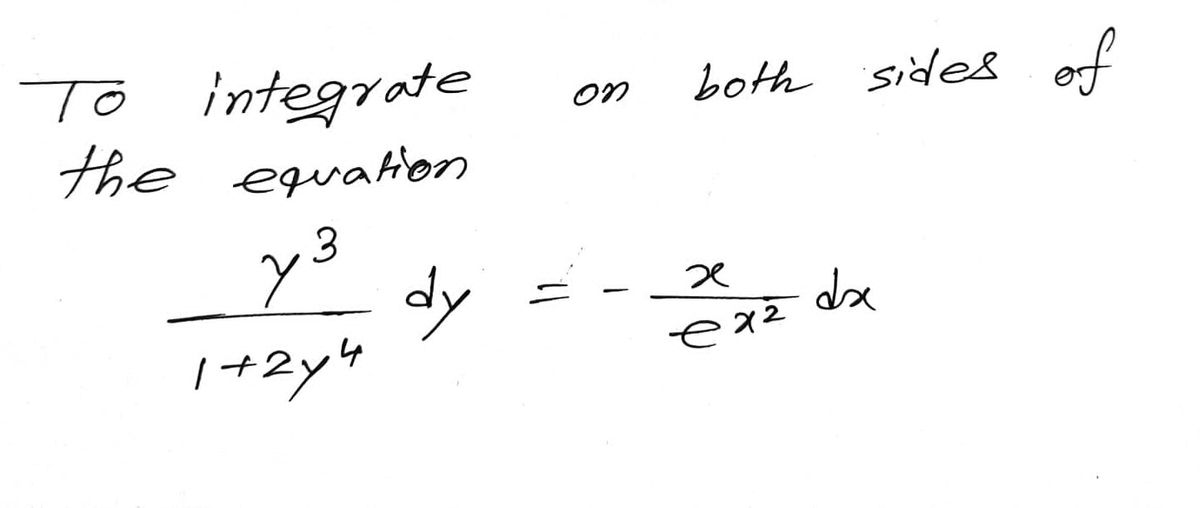 To integrate on both sides of
the equation
y³/(1+2y⁴) dy = - x/e^(x²) dx